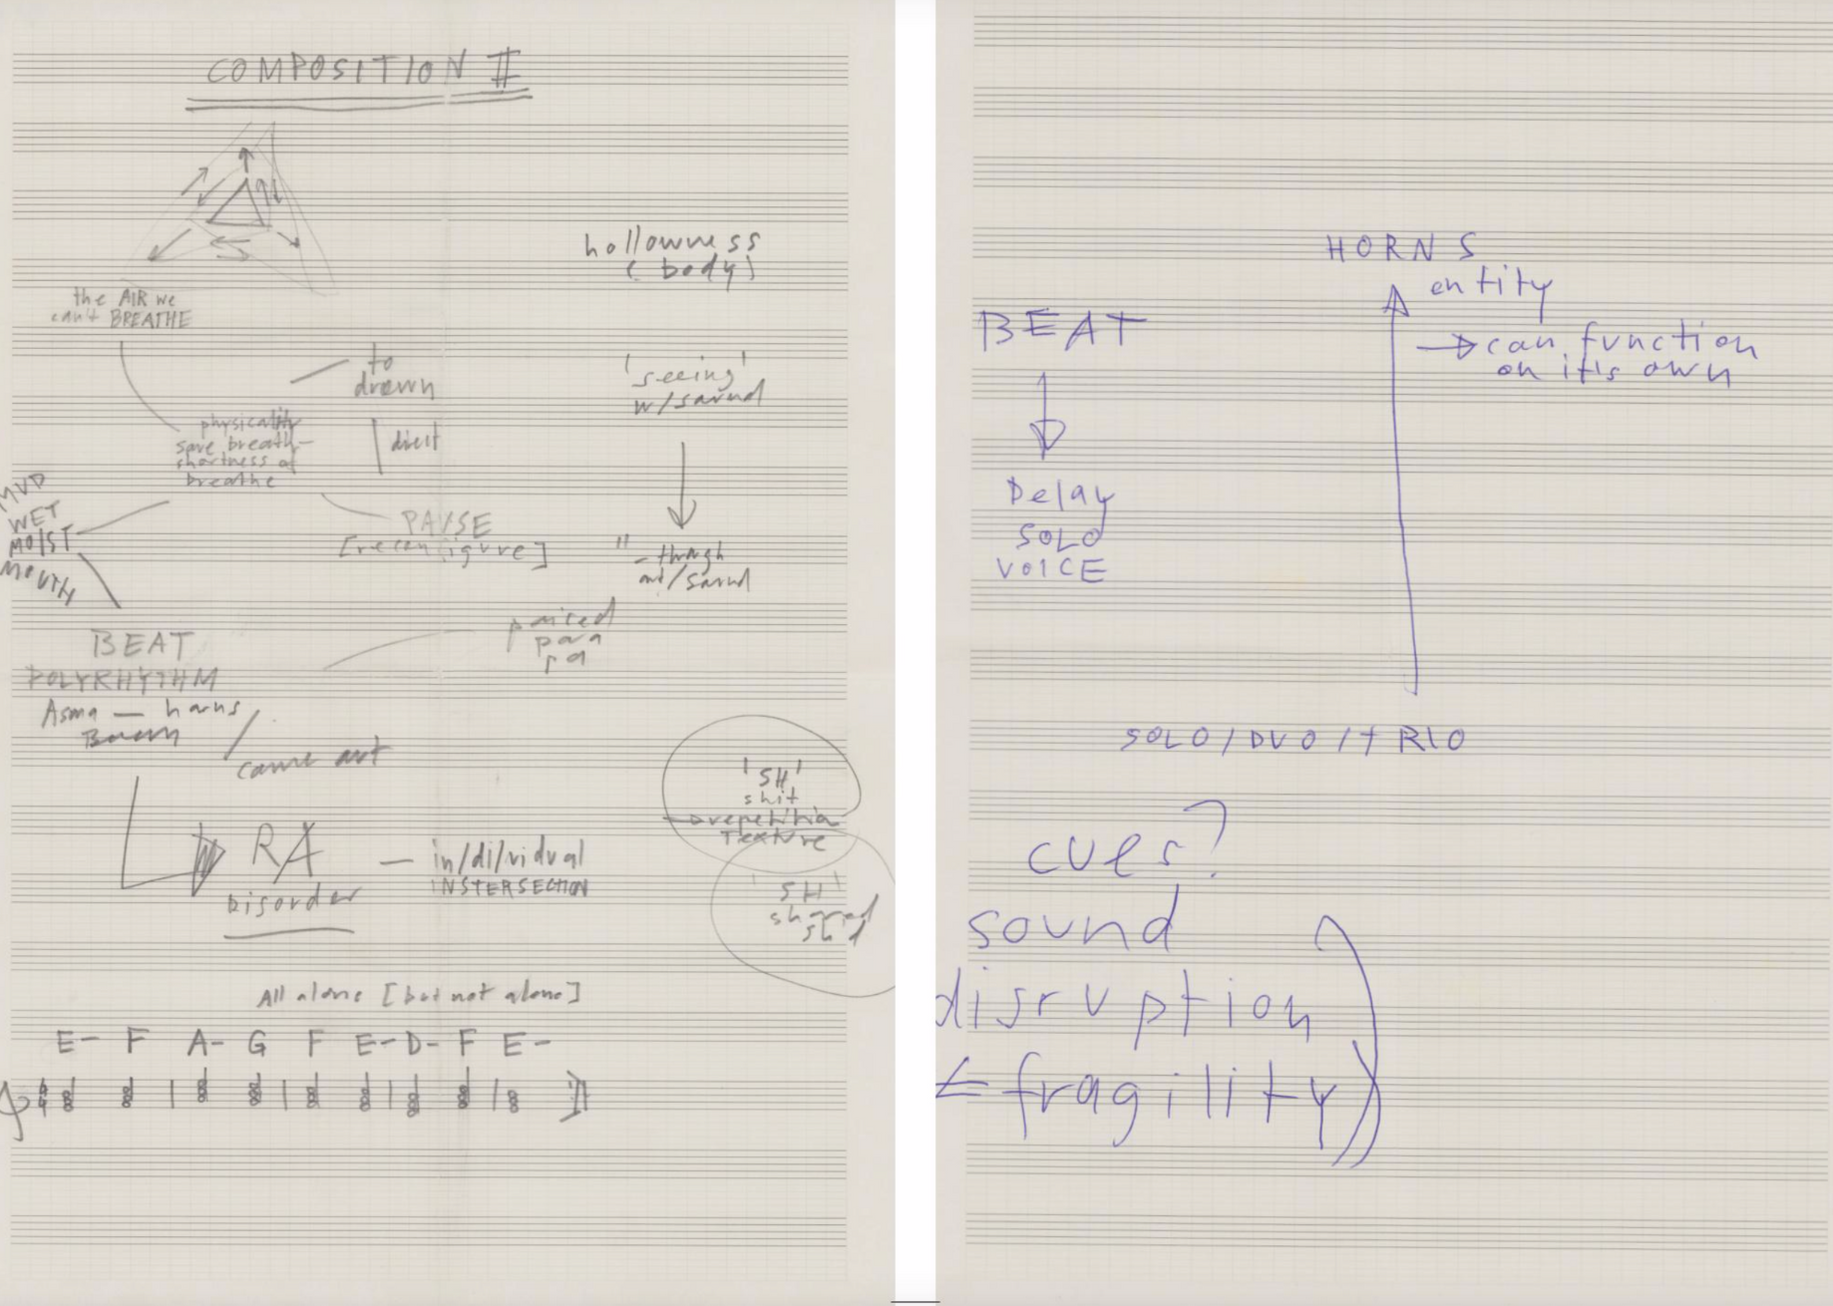 COMPOSITION II
the AIR we
can't BREATHE
hollowness
(body)
to
drown
'seeing'
w/sound
physicality
save breath-
shortness of
breathe
direct
MUD
WET
MOIST
MOUTH
PAUSE
[reconfigure]
" - though
out/sound
para
pa
BEAT
POLYRHYTHM
Asma — horns
come out
'SH'
shit
→ repetition
Texture
RA — in/di/vidual
INSTERSECTION
Disorder
'SH'
shared
All alone [but not alone]
E- F A- G F E- D- F E-
HORNS
entity
→ can function
on it's own
BEAT
Delay
SOLO
VOICE
SOLO/DUO/TRIO
cues?
sound
disruption
fragility